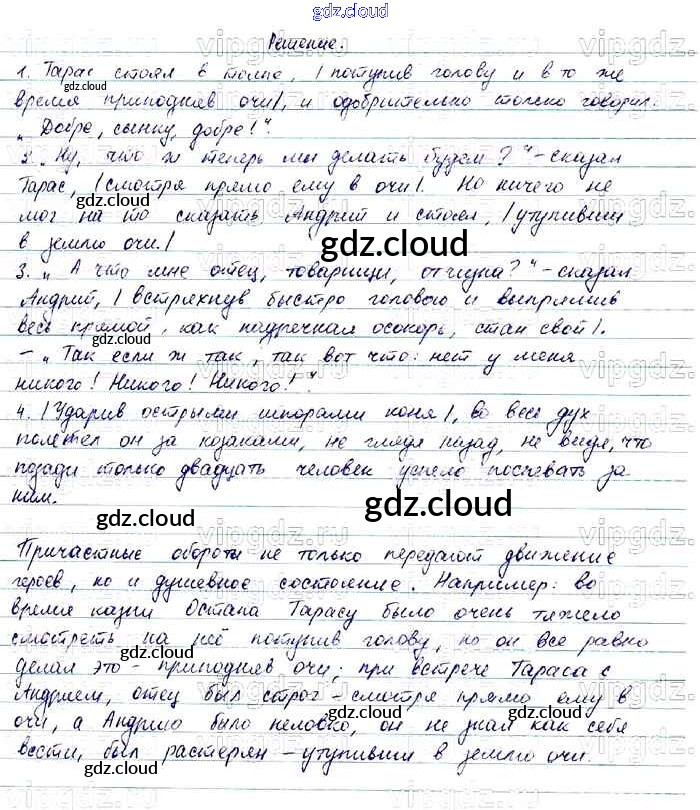 gdz.cloud
Решение.
1. Тарас стоял в толпе, | потупив голову и в то же
время приподняв очи|, и одобрительно только говорил:
„Добре, сынку, добре!“.
2. „Ну, что ж теперь мы делать будем?“ – сказал
Тарас, | смотря прямо ему в очи|. Но ничего не
мог на то сказать Андрий и стоял, | утупивши
в землю очи.|
3. „А что мне отец, товарищи, отчизна?“ – сказал
Андрий, | встряхнув быстро головою и выпрямив
весь прямой, как надречная осокорь, стан свой|.
– „Так если ж так, так вот что: нет у меня
никого! Никого! Никого!“.
4. | Ударив острыми шпорами коня|, во весь дух
полетел он за козаками, не глядя назад, не видя, что
позади только двадцать человек успело поспевать за
ним.
Причастные обороты не только передают движение
героев, но и душевное состояние. Например: во
время казни Остапа Тарасу было очень тяжело
смотреть на неё потупив голову, но он все равно
делал это – приподняв очи; при встрече Тараса с
Андрием, отец был строг – смотря прямо ему в
очи, а Андрию было неловко, он не знал как себя
вести, был растерян – утупивши в землю очи.